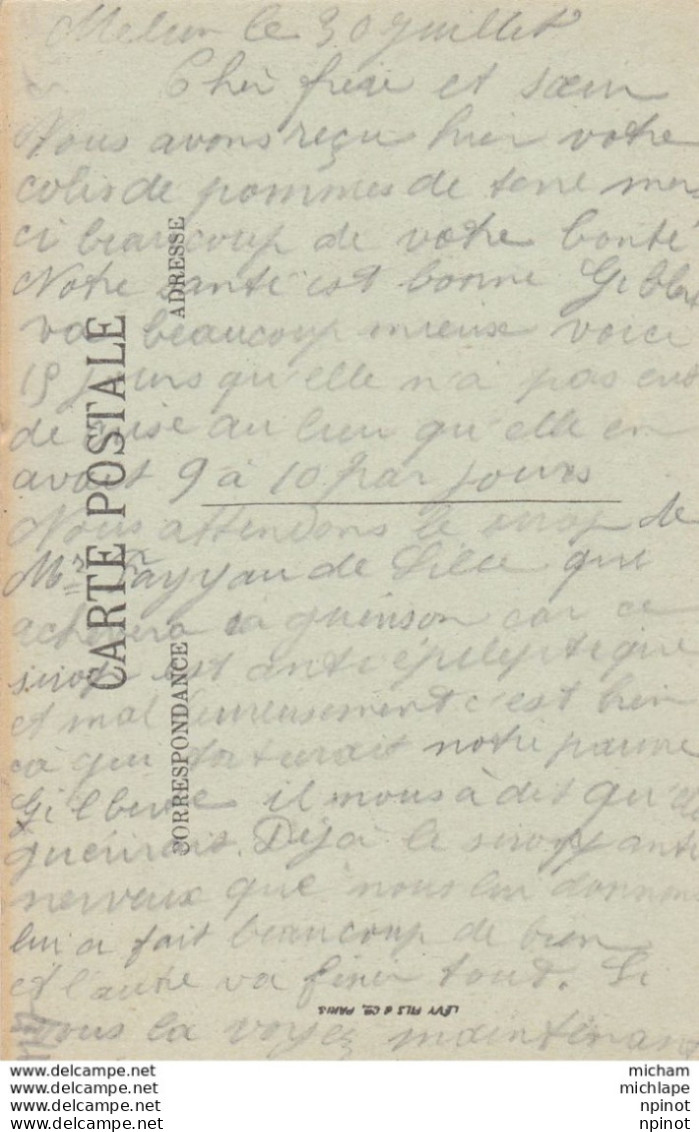 Melun le 30 juillet
Cher frere et sœur
Nous avons reçu hier votre
colis de pommes de terre mer
ci beaucoup de votre bonté
Notre santé est bonne Gilber
va beaucoup mieux voici
15 jours qu'elle n'a pas eut
de crise au lieu qu'elle en
avait 9 à 10 par jours
Nous attendons le sirop de
Mr Fayyau de Lille qui
achevera sa guerison car ce
sirop est anti épileptique
et malheureusement c'est bien
ça qui torturait notre pauvre
Gilberte il nous à dit qu'
guérirait. Déjà le sirop anti
nerveux que nous lui donnons
lui a fait beaucoup de bien
et l'autre va finir tout. Si
vous la voyez maintenant
CARTE POSTALE
CORRESPONDANCE
ADRESSE
LÉVY FILS & Co, PARIS
micham
michlape
npinot
npinot